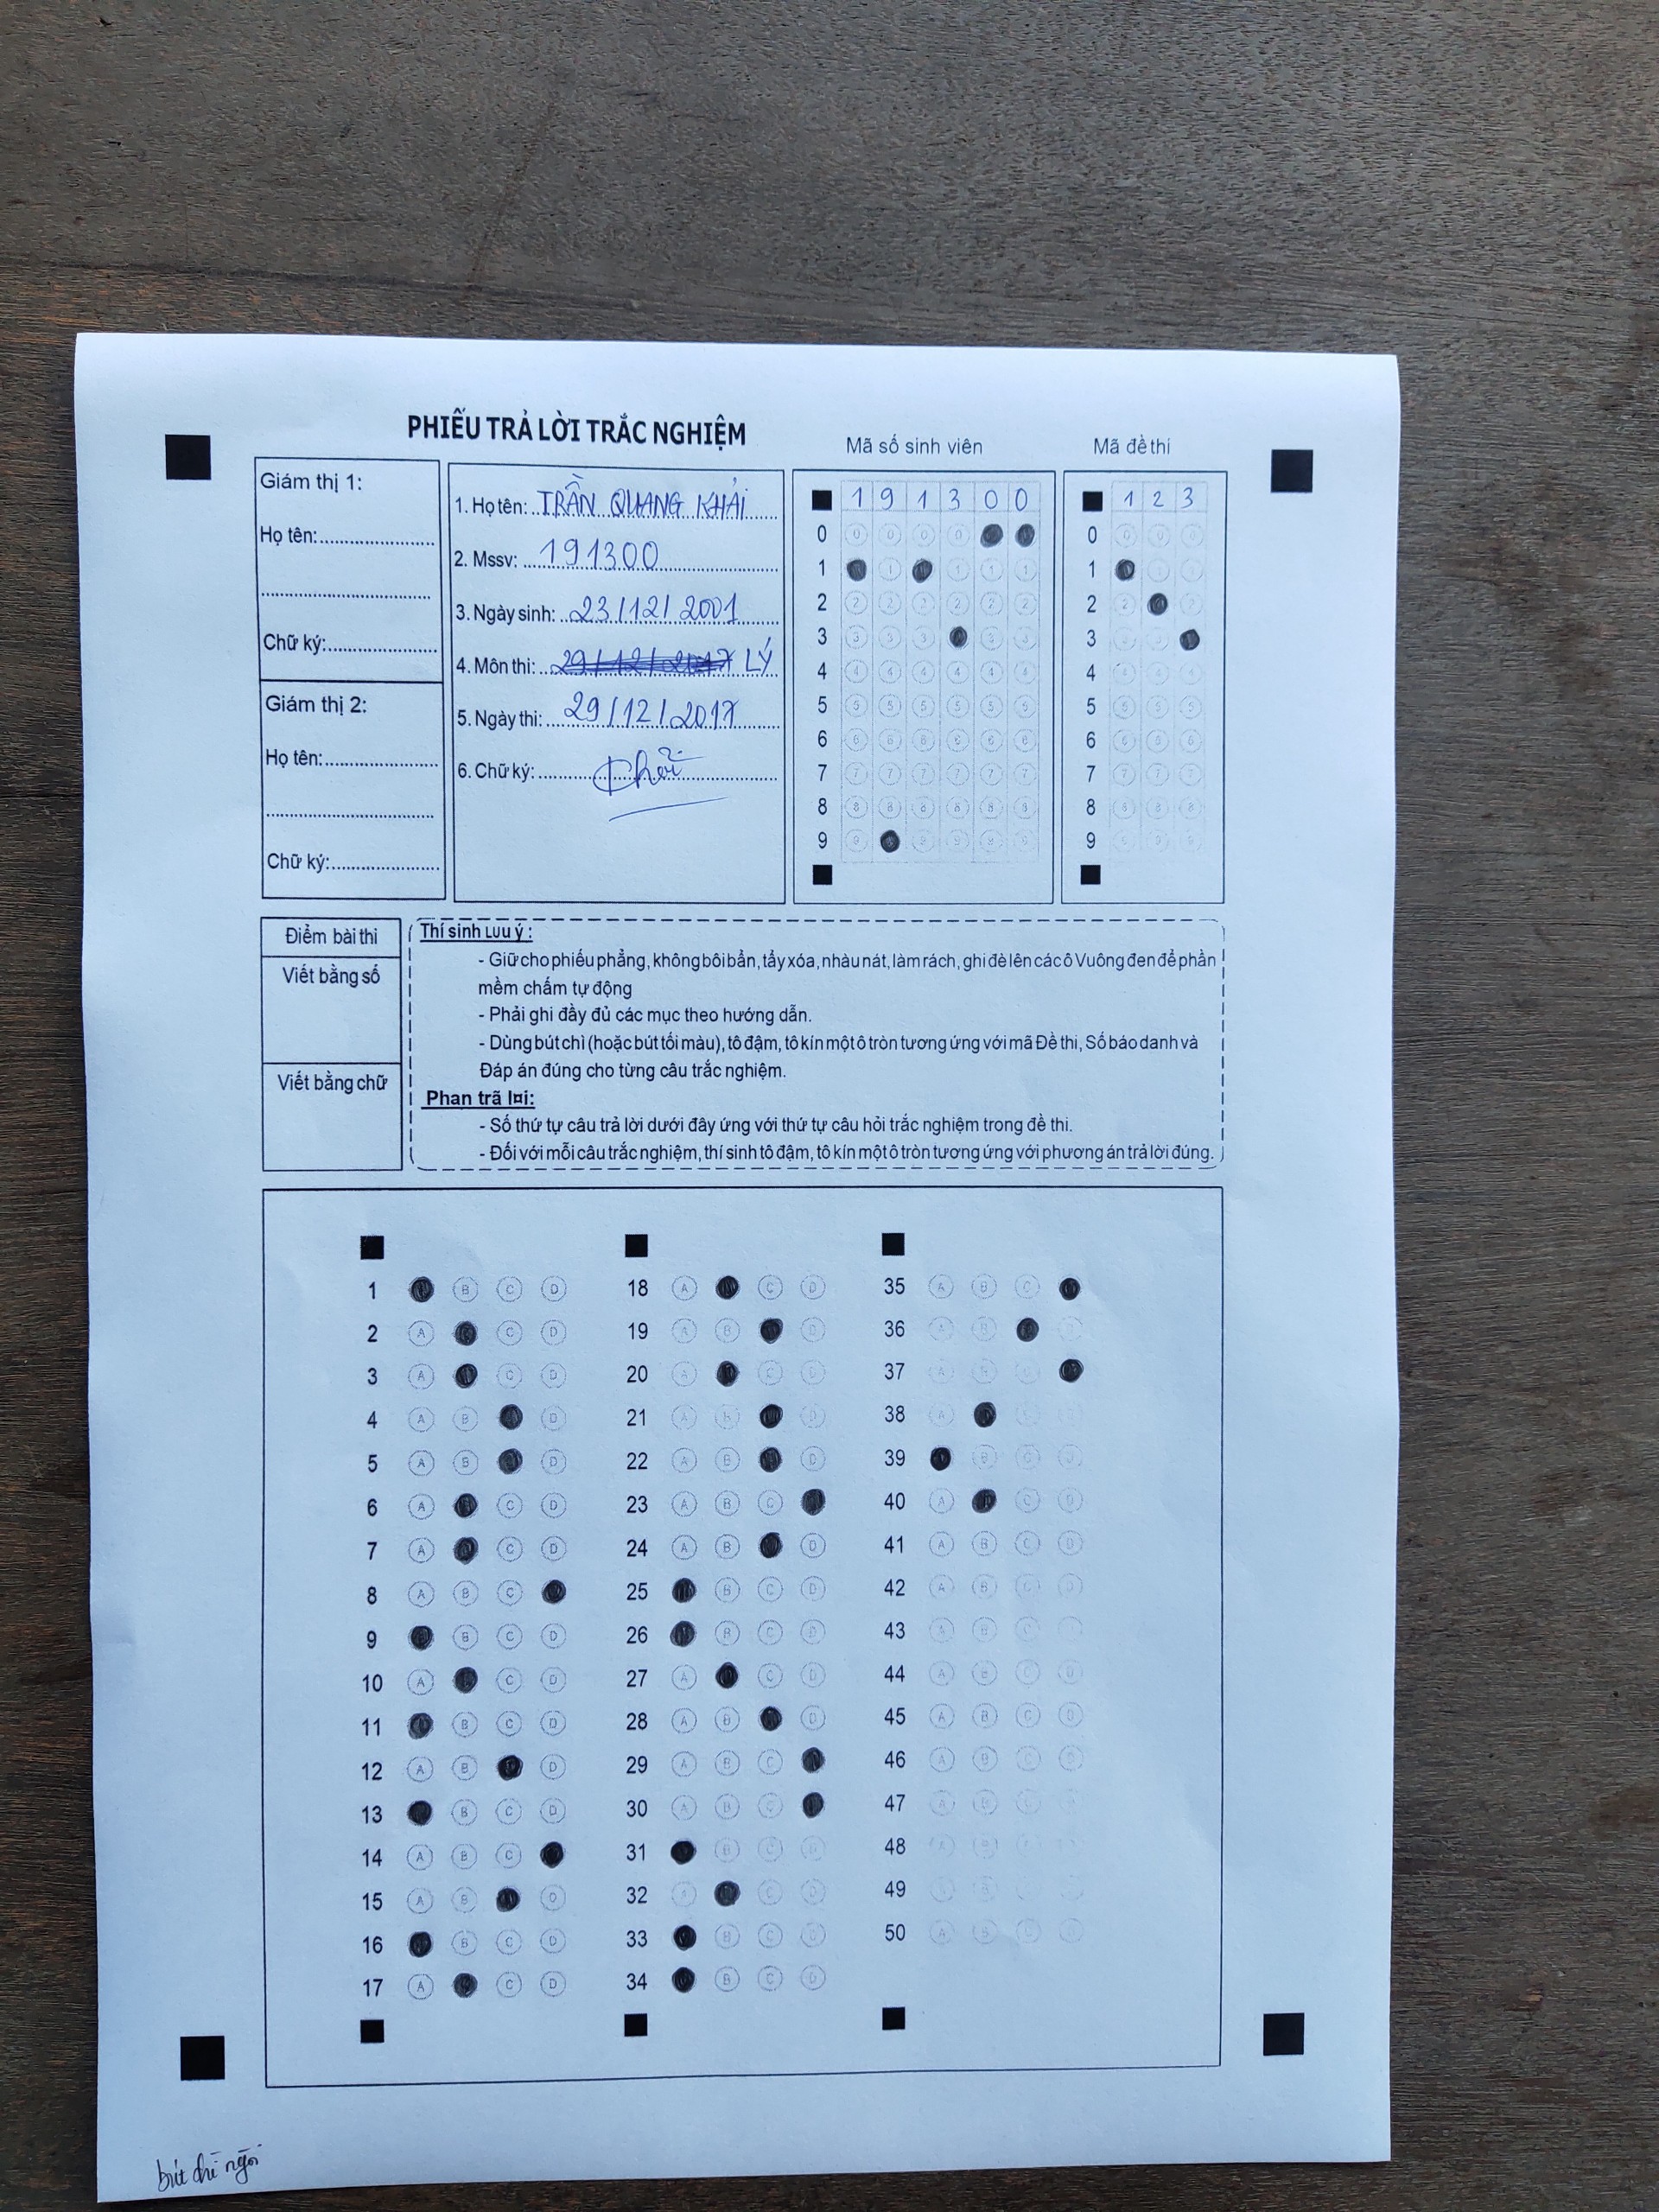 PHIẾU TRẢ LỜI TRẮC NGHIỆM
Mã số sinh viên
Mã đề thi
Giám thị 1:
Họ tên:
Chữ ký:
Giám thị 2:
Họ tên:
Chữ ký:
1. Họ tên: TRẦN QUANG KHẢI
2. Mssv: 191300
3. Ngày sinh: 23/12/2001
4. Môn thi: 29/12/2017 LÝ
5. Ngày thi: 29/12/2017
6. Chữ ký: Khải
1 9 1 3 0 0
0
1
2
3
4
5
6
7
8
9
1 2 3
0
1
2
3
4
5
6
7
8
9
Điểm bài thi
Viết bằng số
Viết bằng chữ
Thí sinh Lưu ý :
- Giữ cho phiếu phẳng, không bôi bẩn, tẩy xóa, nhàu nát, làm rách, ghi đè lên các ô Vuông đen để phần
mềm chấm tự động
- Phải ghi đầy đủ các mục theo hướng dẫn.
- Dùng bút chì (hoặc bút tối màu), tô đậm, tô kín một ô tròn tương ứng với mã Đề thi, Số báo danh và
Đáp án đúng cho từng câu trắc nghiệm.
Phan trã l¤i:
- Số thứ tự câu trả lời dưới đây ứng với thứ tự câu hỏi trắc nghiệm trong đề thi.
- Đối với mỗi câu trắc nghiệm, thí sinh tô đậm, tô kín một ô tròn tương ứng với phương án trả lời đúng.
1 B C D
2 A C D
3 A C D
4 A B D
5 A B D
6 A C D
7 A C D
8 A B C
9 B C D
10 A C D
11 B C D
12 A B D
13 B C D
14 A B C
15 A B D
16 B C D
17 A C D
18 A C D
19 A B D
20 A C D
21 A B D
22 A B D
23 A B C
24 A B D
25 B C D
26 B C D
27 A C D
28 A B D
29 A B C
30 A B C
31 B C D
32 A C D
33 B C D
34 B C D
35 A B C
36 A B D
37 A B C
38 A C D
39 B C D
40 A C D
41 A B C D
42 A B C D
43 A B C D
44 A B C D
45 A B C D
46 A B C D
47 A B C
48
49
50 A B C D
bút chì ngòi